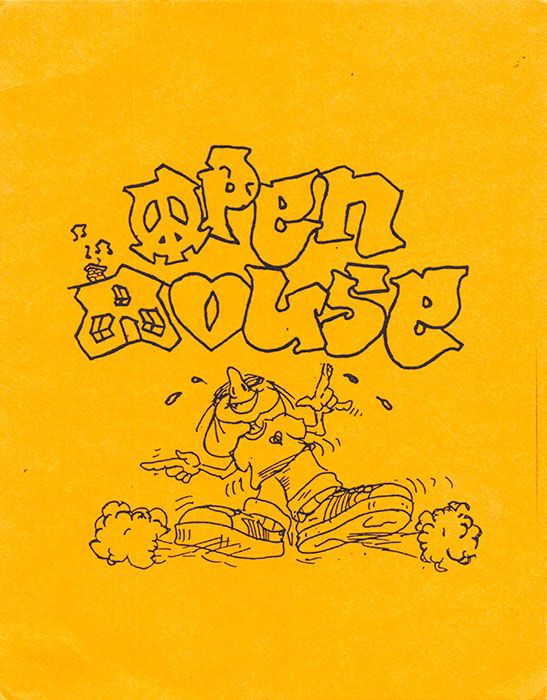 Open
House